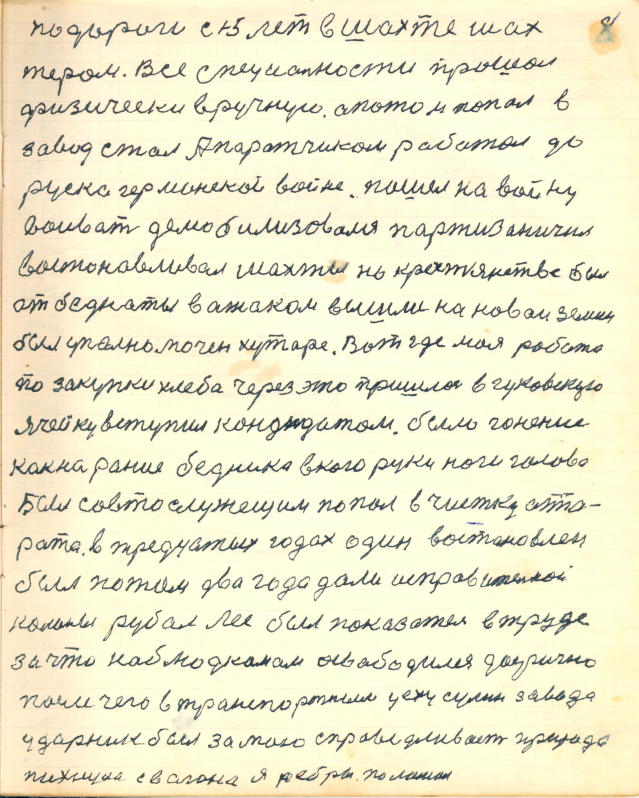 8
подороги с 15 лет в шахте шах
тером. Все специалности прошол
физически вручную. а потом попал в
завод стал Апаратчиком работал до
руска германской войне. пошел на войну
воиват демобилизовался партизаничил
востонавливал шахты но крестянстве был
от беднаты важаком вышили на новаи земли
был упалномочен хутаре. Вот где моя работа
по закупки хлеба через это пришлос в гуковскую
ячейку вступил кондидатом. было гонение
как на рание бедника в кого руки ноги голова
Был совтослужещим попал в чистку аппа-
рата. в тредцатых годах один востановлен
был потом два года дали исправителной
колоны рубал лес был показател в труде
за что наблюдкомам освабодился досрочно
после чего в транспортным цеху сулин завода
ударник был за мою справедливост
с вагона я ребры поломал